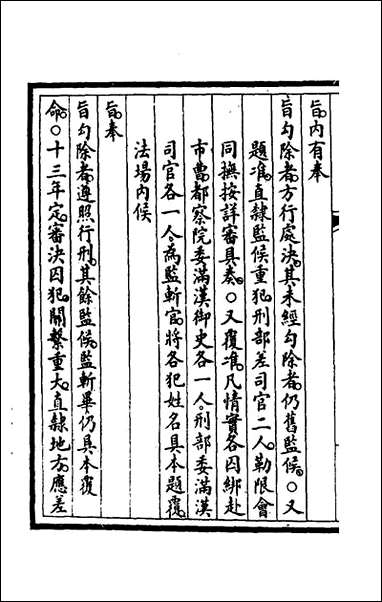 旨內有奉
旨勾除者方行處決其未經勾除者仍舊監候○又
題准直隸監候重犯刑部差司官二人勒限會
同撫按詳審具奏○又覆准凡情實各囚綁赴
市曹都察院委滿漢御史各一人刑部委滿漢
司官各一人為監斬官將各犯姓名具本題覆
法場內候
旨奉
旨勾除者遵照行刑其餘監候監斬畢仍具本覆
命○十三年定審決囚犯關繫重大直隸地方應差